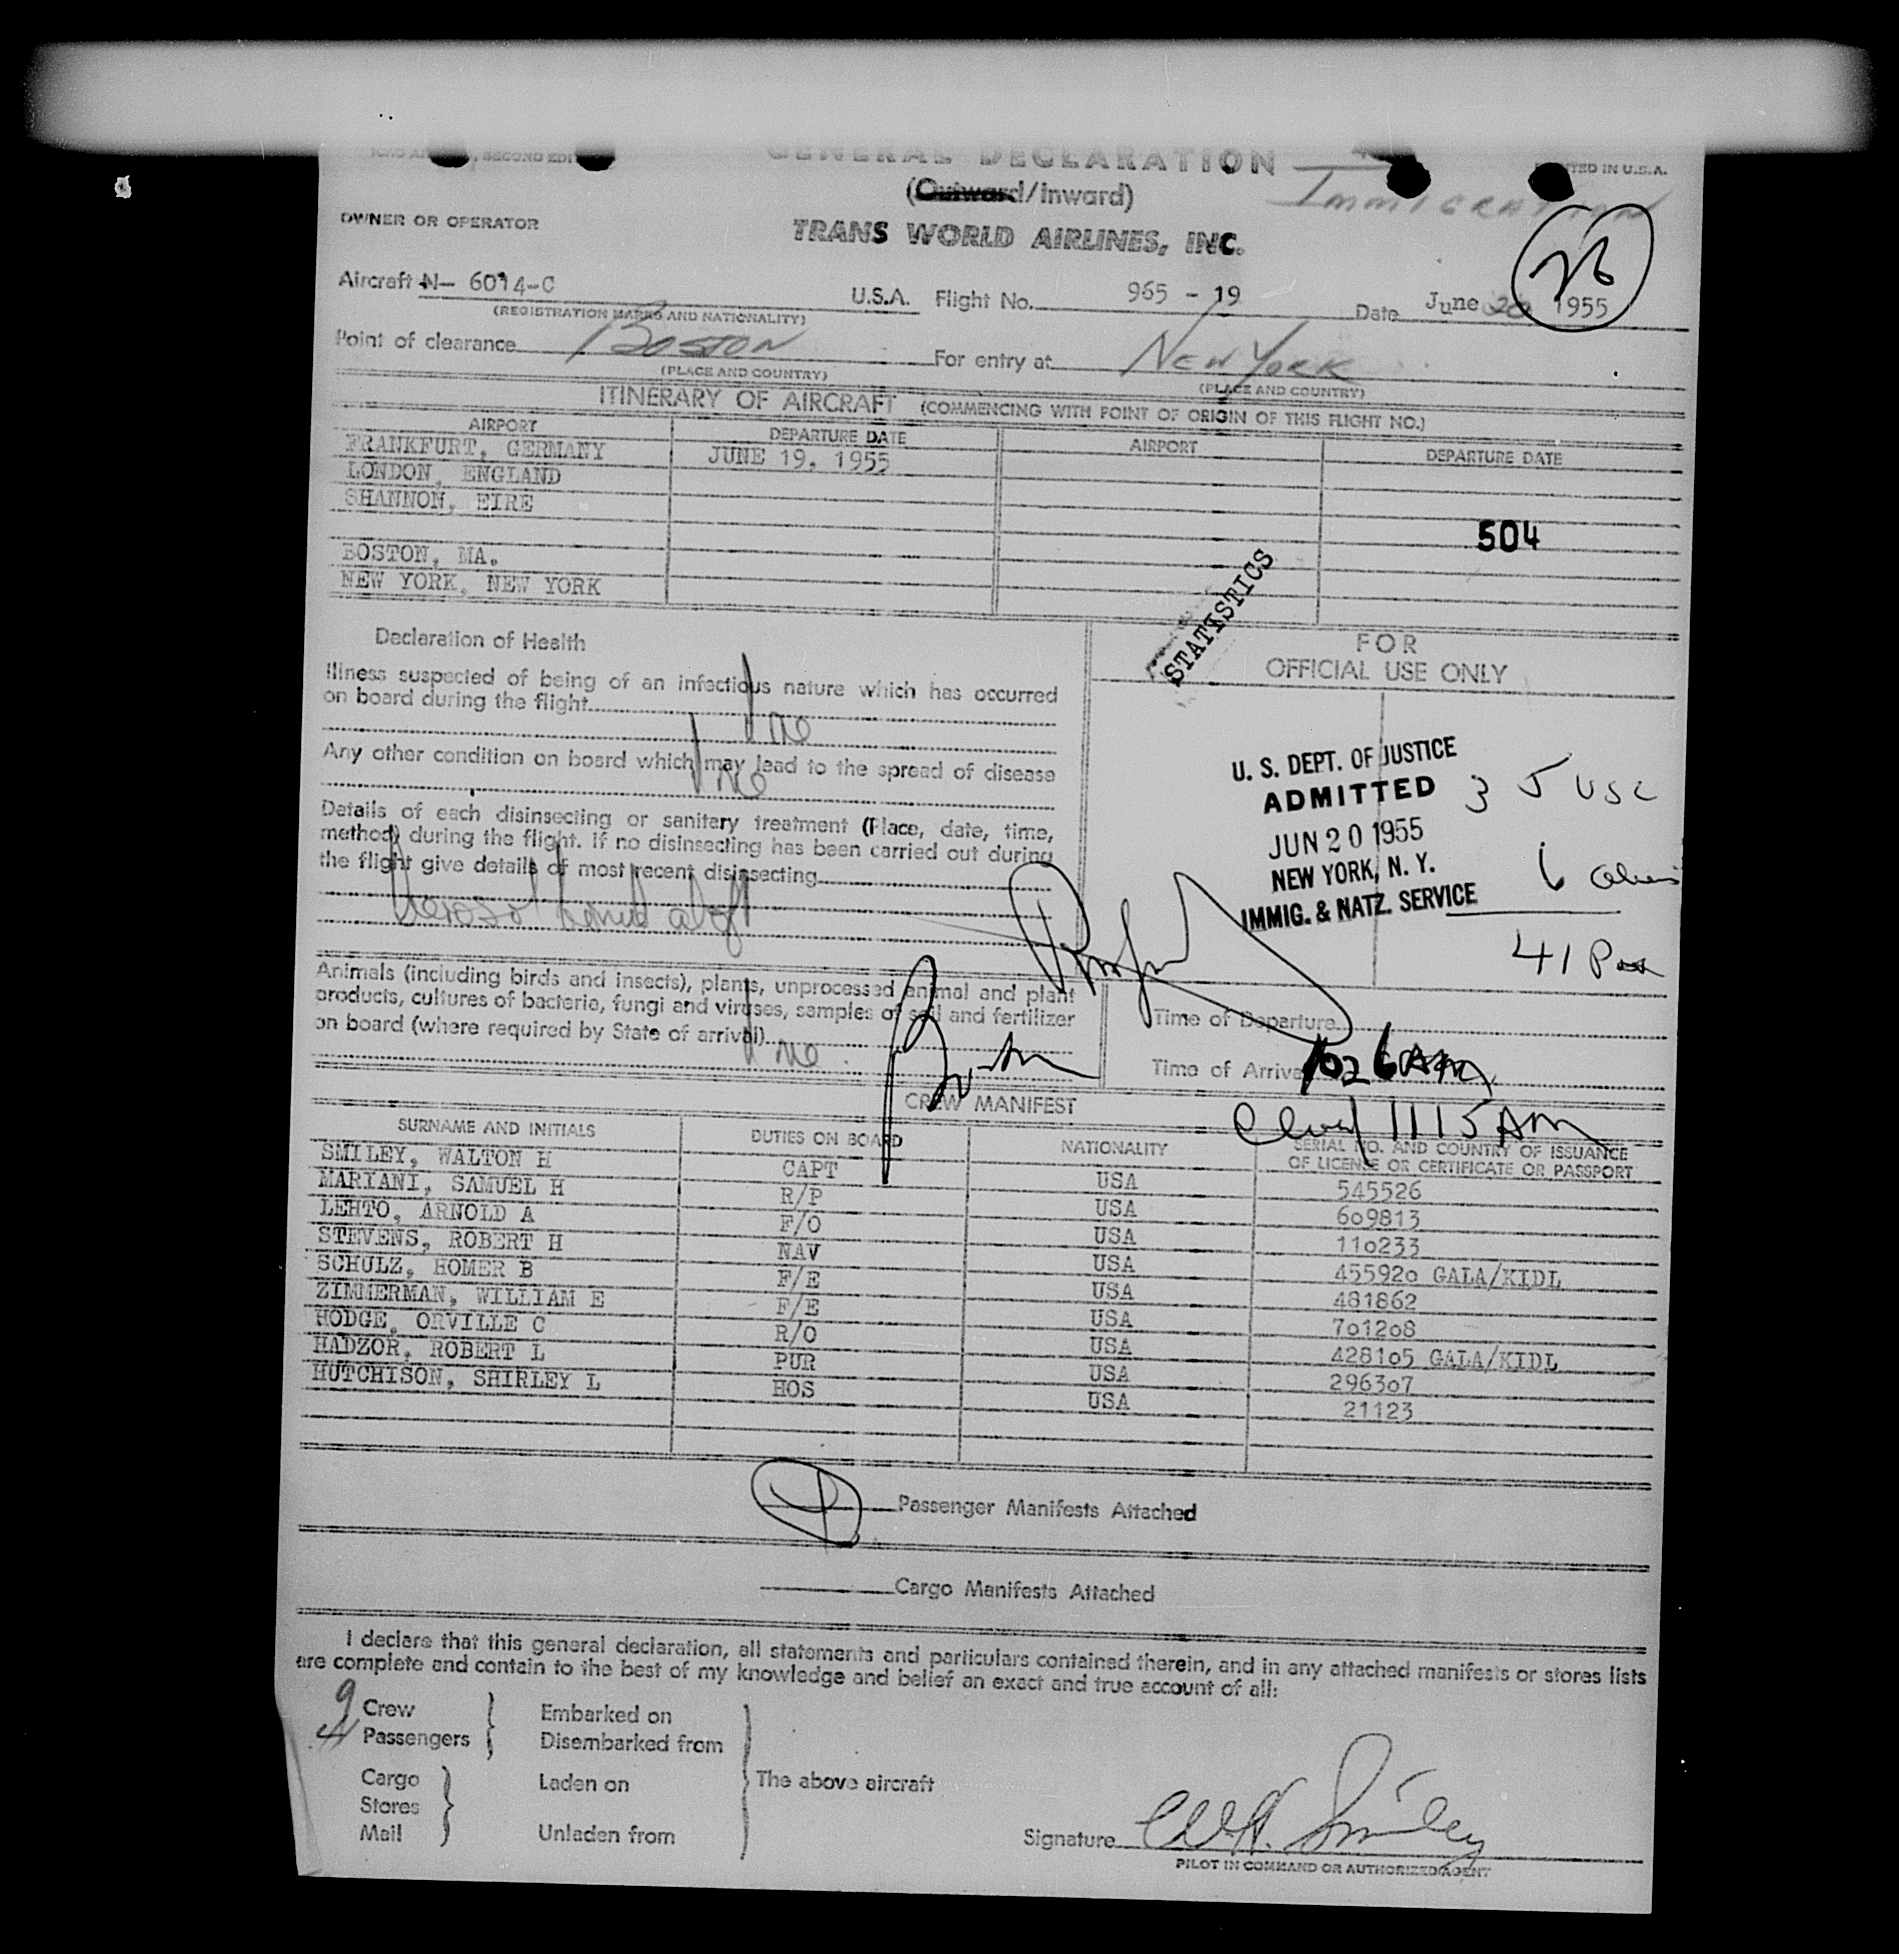 , SECOND EDI
GENERAL DECLARATION
TED IN U.S.A.
(Outward/Inward)
IMMIGRATION
OWNER OR OPERATOR
TRANS WORLD AIRLINES, INC.
26
Aircraft N- 6014-C U.S.A. Flight No. 965 - 19 Date June 20 1955
(REGISTRATION MARKS AND NATIONALITY)
Point of clearance BOSTON For entry at NEW YORK
(PLACE AND COUNTRY) (PLACE AND COUNTRY)
ITINERARY OF AIRCRAFT (COMMENCING WITH POINT OF ORIGIN OF THIS FLIGHT NO.)
AIRPORT DEPARTURE DATE AIRPORT DEPARTURE DATE
FRANKFURT, GERMANY JUNE 19, 1955
LONDON, ENGLAND
SHANNON, EIRE
504
BOSTON, MA.
NEW YORK, NEW YORK
STATISTICS
Declaration of Health
FOR
OFFICIAL USE ONLY
Illness suspected of being of an infectious nature which has occurred
on board during the flight
no
Any other condition on board which may lead to the spread of disease
no
Details of each disinsecting or sanitary treatment (Place, date, time,
method) during the flight. If no disinsecting has been carried out during
the flight give details of most recent disinsecting
Aerosol bomb aloft
U. S. DEPT. OF JUSTICE
ADMITTED
JUN 20 1955
NEW YORK, N. Y.
IMMIG. & NATZ. SERVICE
35 USC
6 aliens
41 Pass
Animals (including birds and insects), plants, unprocessed animal and plant
products, cultures of bacteria, fungi and viruses, samples of soil and fertilizer
on board (where required by State of arrival)
no
Time of Departure
Time of Arrival 1026 AM
1115 AM
CREW MANIFEST
SURNAME AND INITIALS DUTIES ON BOARD NATIONALITY SERIAL NO. AND COUNTRY OF ISSUANCE
OF LICENSE OR CERTIFICATE OR PASSPORT
SMILEY, WALTON H CAPT USA 545526
MARIANI, SAMUEL H R/P USA 609813
LEHTO, ARNOLD A F/O USA 110233
STEVENS, ROBERT H NAV USA 455920 GALA/KIDL
SCHULZ, HOMER B F/E USA 481862
ZIMMERMAN, WILLIAM E F/E USA 701208
HODGE, ORVILLE C R/O USA 428105 GALA/KIDL
HADZOR, ROBERT L PUR USA 296307
HUTCHISON, SHIRLEY L HOS USA 21123
Passenger Manifests Attached
Cargo Manifests Attached
I declare that this general declaration, all statements and particulars contained therein, and in any attached manifests or stores lists
are complete and contain to the best of my knowledge and belief an exact and true account of all:
9 Crew Embarked on
41 Passengers Disembarked from
Cargo Laden on The above aircraft
Stores
Mail Unladen from
Signature W.H. Smiley
PILOT IN COMMAND OR AUTHORIZED AGENT